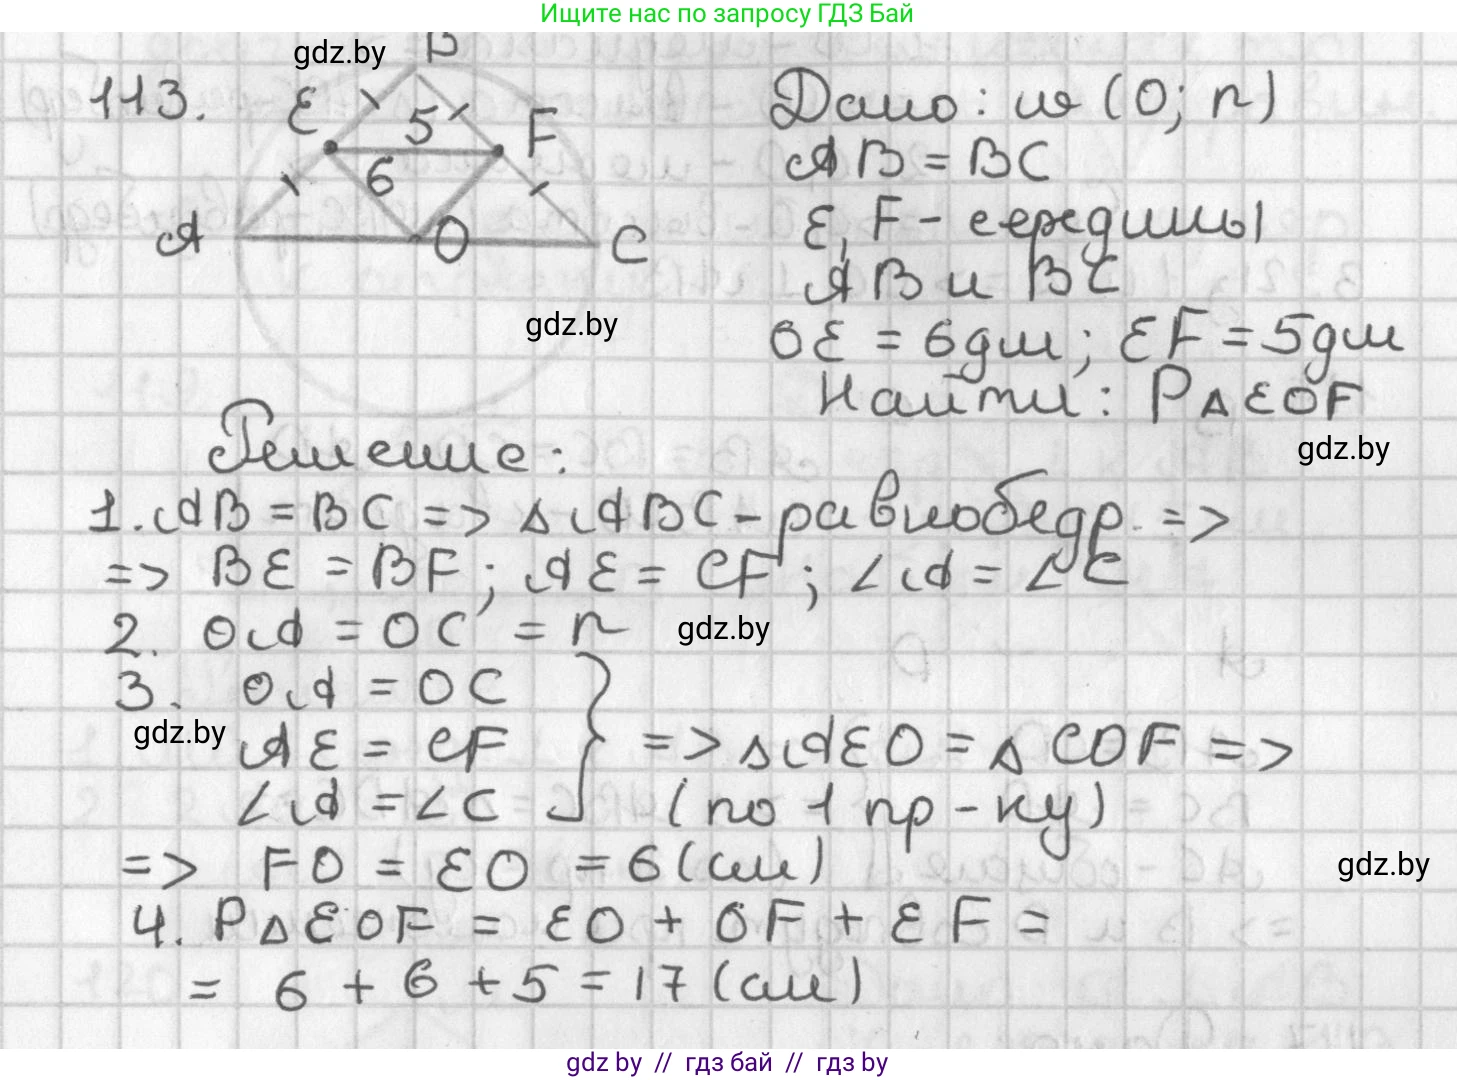 Ищите нас по запросу ГДЗ Бай
gdz.by
113.
B
E
5
F
6
A
O
C
Дано: w (O; r)
AB = BC
E, F - середины
AB и BC
OE = 6дм; EF = 5дм
Найти: P△EOF
gdz.by
gdz.by
Решение:
1. AB = BC => △ABC - равнобедр. =>
=> BE = BF; AE = CF; ∠A = ∠C
2. OA = OC = r
gdz.by
3. OA = OC
gdz.by
AE = CF } => △AEO = △COF =>
∠A = ∠C (по 1 пр-ку)
=> FO = EO = 6 (см)
gdz.by
4. P△EOF = EO + OF + EF =
= 6 + 6 + 5 = 17 (см)
gdz by // гдз бай // гдз by